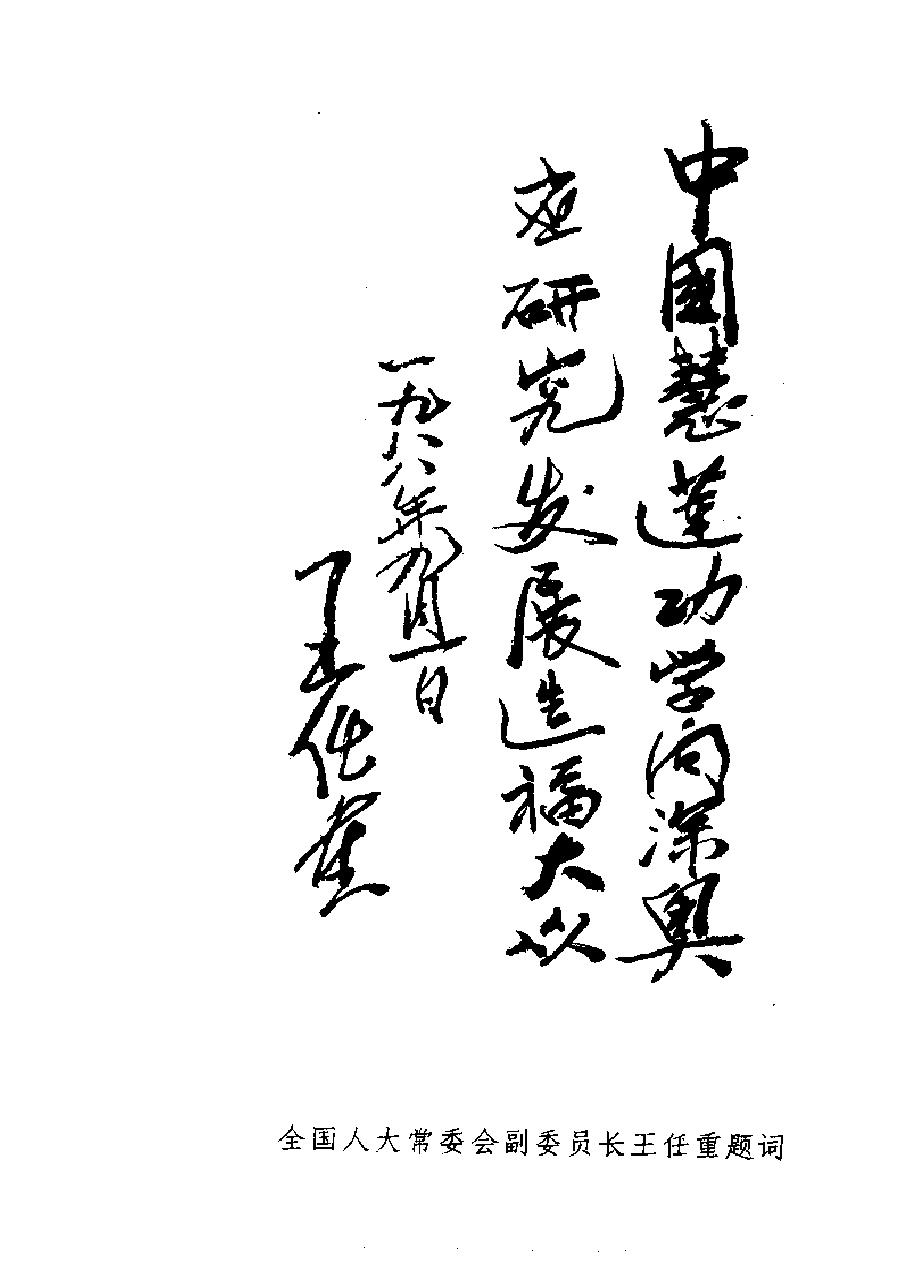 中國慧莲功学问深奥
应研究发展造福大众
一九八八年九月一日
王任重
全国人大常委会副委员长王任重题词